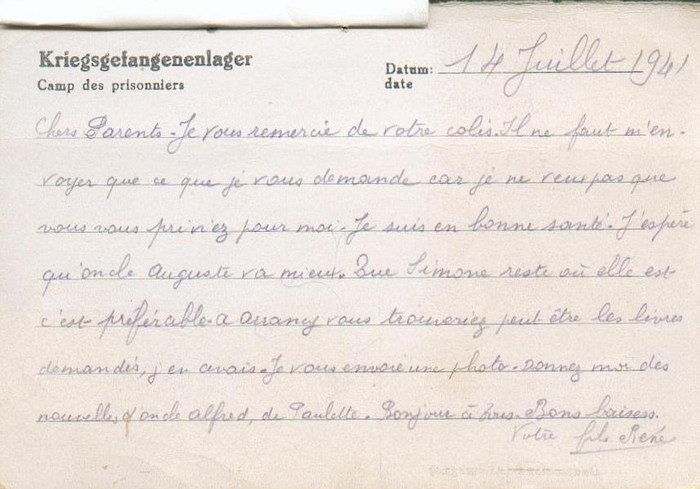 Kriegsgefangenenlager
Camp des prisonniers
Datum: 14 Juillet 1941
date
Chers Parents - Je vous remercie de votre colis. Il ne faut m'en-
voyer que ce que je vous demande car je ne veux pas que
vous vous priviez pour moi - Je suis en bonne santé. J'espère
qu'oncle Auguste va mieux. Que Simone reste où elle est
c'est préférable. a arrancy vous trouveriez peut être les livres
demandés, j'en avais. Je vous envoie une photo - Donnez moi des
nouvelles d'oncle alfred, de Paulette. Bonjour à tous. Bons baisers.
Votre fils René